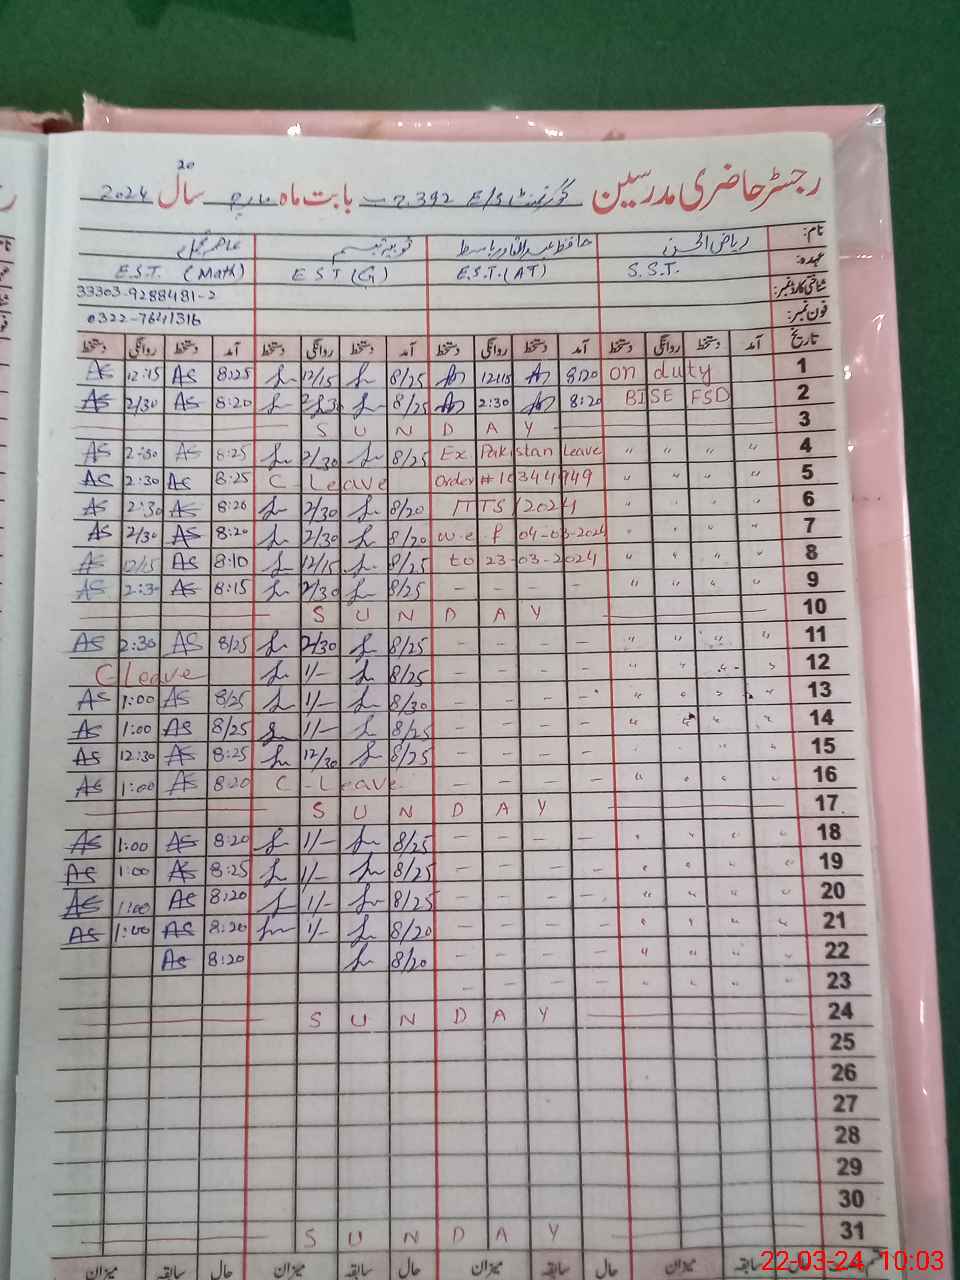 رجسٹر حاضری مدرسین گورنمنٹ E/S 392 بابت ماہ مارچ سال 2024
20
نام: ریاض الحسن حافظ عبدالقادر باسط ثوبیہ تبسم
عہدہ: S.S.T. E.S.T.(AT) E S T (G) E.S.T. (Math)
شناختی کارڈ نمبر: 33303-9288481-2
فون نمبر: 0322-7641316
تاریخ آمد دستخط روانگی دستخط آمد دستخط روانگی دستخط آمد دستخط روانگی دستخط آمد دستخط روانگی دستخط
AS 12:15 AS 8:25 12/15 8/25 12:15 8:20 on duty 1
AS 2/30 AS 8:20 2/30 8/25 2:30 8:20 BISE FSD 2
S U N D A Y 3
AS 2:30 AS 8:25 2/30 8/25 Ex Pakistan Leave " " " " 4
AS 2:30 AS 8:25 C-Leave " " " " 5
AS 2:30 AS 8:20 2/30 8/20 2024 " " " " 6
AS 2/30 AS 8:20 2/30 8/20 w.e.f 04-03-2024 " " " " 7
AS 12/15 AS 8:10 12/15 8/25 to 23-03-2024 " " " " 8
AS 2:30 AS 8:15 2/30 8/25 - - - - " " " " 9
S U N D A Y 10
AS 2:30 AS 8/25 2/30 8/25 - - - - " " " " 11
C Leave 1/- 8/25 - - - - " " " " 12
AS 1:00 AS 8/25 1/- 8/30 - - - - " " " " 13
AS 1:00 AS 8/25 1/- 8/25 - - - - " " " " 14
AS 12:30 AS 8:25 12/30 8/25 - - - - " " " " 15
AS 1:00 AS 8:20 C-Leave - - - - " " " " 16
S U N D A Y 17
AS 1:00 AS 8:20 1/- 8/25 - - - - " " " " 18
AS 1:00 AS 8:25 1/- 8/25 - - - - " " " " 19
AS 1:00 AS 8:20 1/- 8/25 - - - - " " " " 20
AS 1:00 AS 8:20 1/- 8/20 - - - - " " " " 21
AS 8:20 8/20 - - - - " " " " 22
- - - - " " " " 23
S U N D A Y 24
25
26
27
28
29
30
S U N D A Y 31
حال سابقہ میزان حال سابقہ میزان حال سابقہ میزان حال سابقہ میزان
22-03-24 10:03